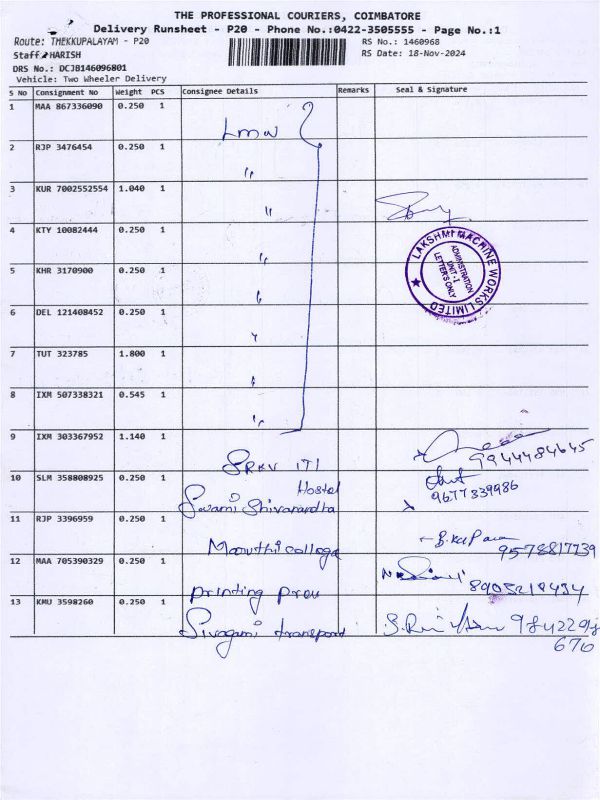 THE PROFESSIONAL COURIERS, COIMBATORE
Delivery Runsheet - P20 - Phone No.:0422-3505555 - Page No.:1
Route: THEKKUPALAYAM - P20
RS No.: 1460968
Staff: HARISH
RS Date: 18-Nov-2024
DRS No.: DCJB146096801
Vehicle: Two Wheeler Delivery
S No Consignment No Weight PCS Consignee Details Remarks Seal & Signature
1 MAA 867336090 0.250 1
Lmw
2 RJP 3476454 0.250 1
"
3 KUR 7002552554 1.040 1
"
4 KTY 10082444 0.250 1
"
LAKSHMI MACHINE WORKS LIMITED
ADMINISTRATION
UNIT-I
LETTERS ONLY
5 KHR 3170900 0.250 1
"
6 DEL 121408452 0.250 1
"
7 TUT 323785 1.800 1
"
8 IXM 507338321 0.545 1
"
9 IXM 303367952 1.140 1
SRKV ITI 9944484645
10 SLM 358808925 0.250 1
Hostel
Swami Shivanandha 9677839986
11 RJP 3396959 0.250 1
Maruthi college 9578817739
12 MAA 705390329 0.250 1
Printing Press
13 KMU 3598260 0.250 1
Sivagami transport
676